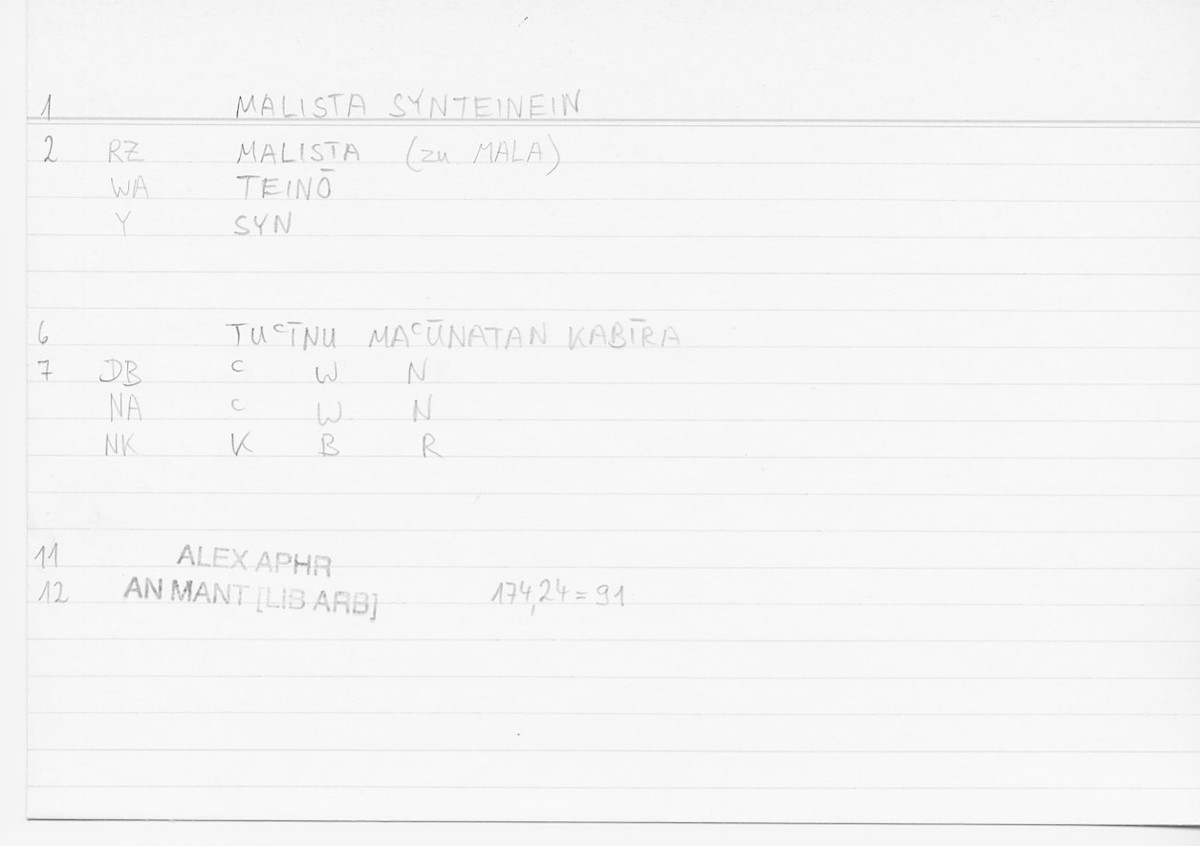 1 MALISTA SYNTEINEIN
2 RZ MALISTA (zu MALA)
WA TEINŌ
Y SYN
6 TUᶜĪNU MAᶜŪNATAN KABĪRA
7 DB ᶜ W N
NA ᶜ W N
NK K B R
11 ALEX APHR
12 AN MANT [LIB ARB] 174,24 = 91